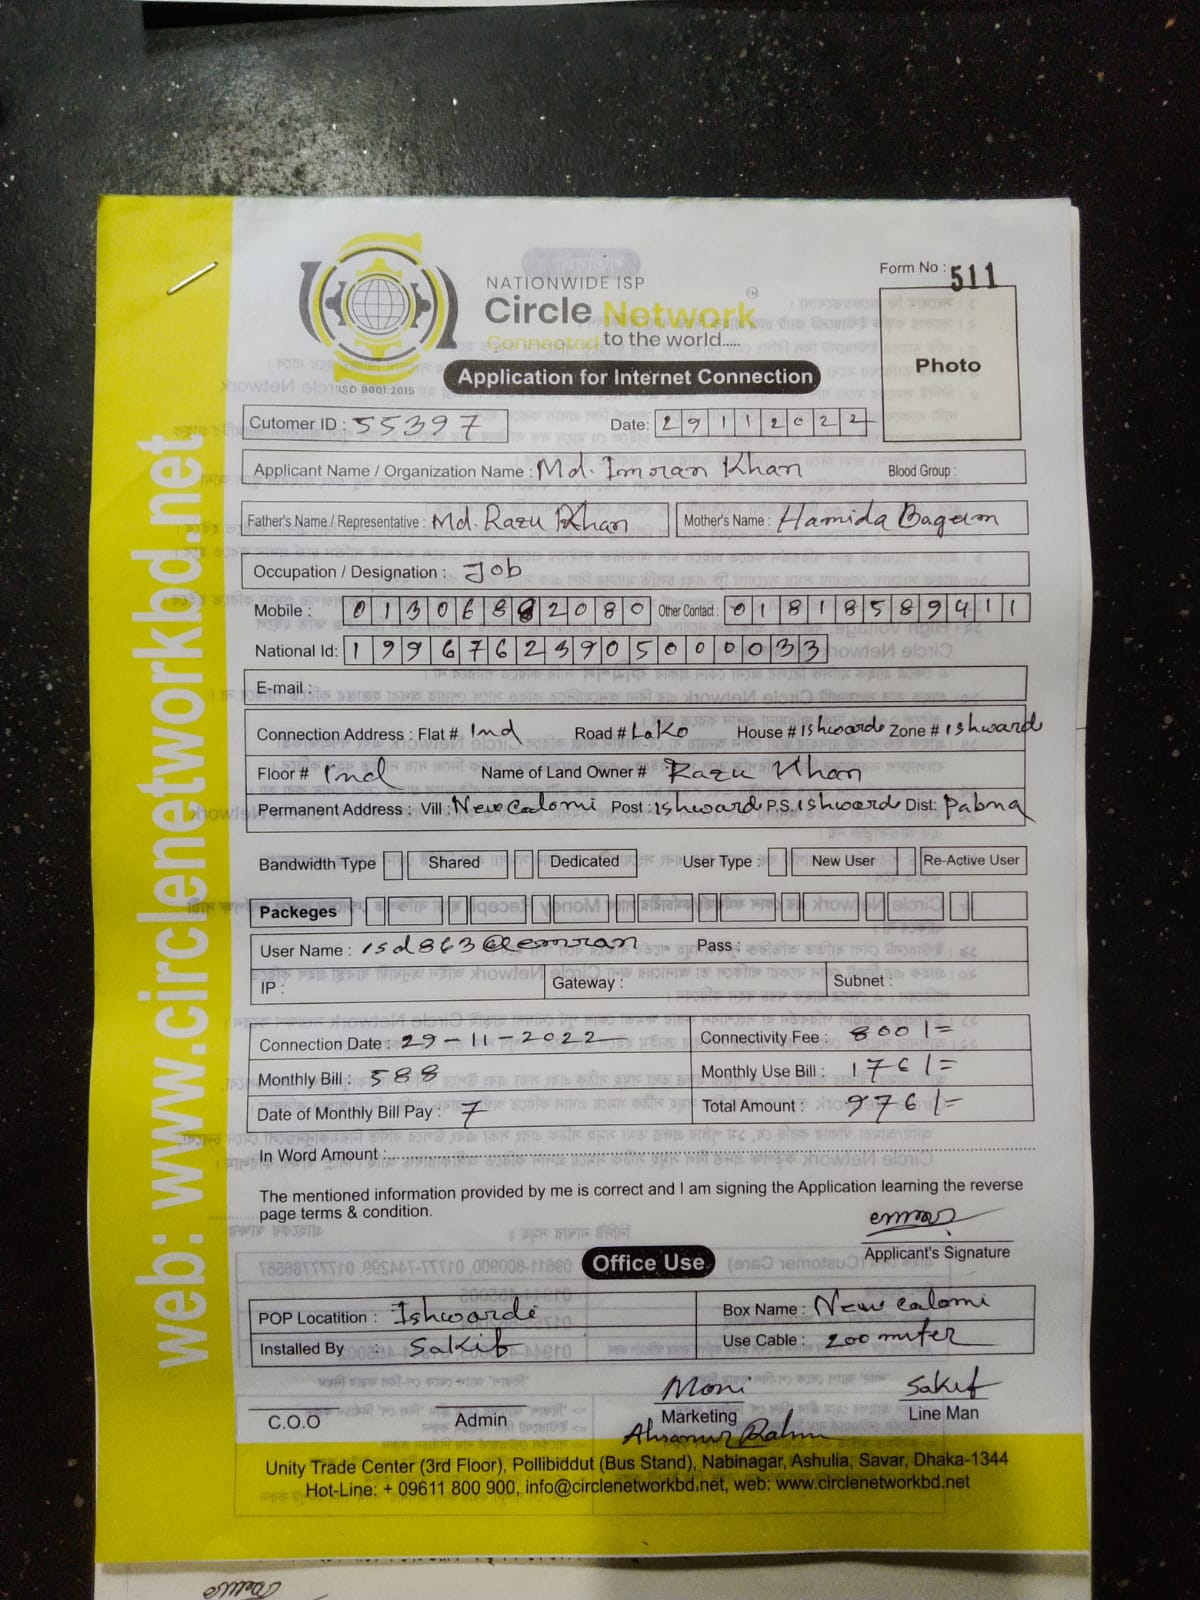 web: www.circlenetworkbd.net
NATIONWIDE ISP
Circle Network
Connected to the world.....
ISO 9001:2015
Application for Internet Connection
Form No : 511
Photo
Cutomer ID : 55397 Date: 29112022
Applicant Name / Organization Name : Md. Imoran Khan Blood Group :
Father's Name / Representative : Md. Razu Khan Mother's Name : Hamida Bagum
Occupation / Designation : Job
Mobile : 01306882080 Other Contact : 01818589411
National Id: 19967623905000033
E-mail :
Connection Address : Flat # Ind Road # Lako House # Ishwarde Zone # Ishward
Floor # Ind Name of Land Owner # Razu Khan
Permanent Address : Vill: New Calomi Post : Ishward P.S. Ishward Dist: Pabna
Bandwidth Type Shared Dedicated User Type : New User Re-Active User
Packeges
User Name : isd863@emran Pass :
IP : Gateway : Subnet :
Connection Date : 29-11-2022 Connectivity Fee : 800/=
Monthly Bill : 588 Monthly Use Bill : 176/=
Date of Monthly Bill Pay : 7 Total Amount : 976/=
In Word Amount :
The mentioned information provided by me is correct and I am signing the Application learning the reverse
page terms & condition.
Applicant's Signature
Office Use
POP Locatition : Ishwarde Box Name : New calomi
Installed By : Sakib Use Cable : 200 miter
Moni Sakif
C.O.O Admin Marketing Line Man
Unity Trade Center (3rd Floor), Pollibiddut (Bus Stand), Nabinagar, Ashulia, Savar, Dhaka-1344
Hot-Line: + 09611 800 900, info@circlenetworkbd.net, web: www.circlenetworkbd.net